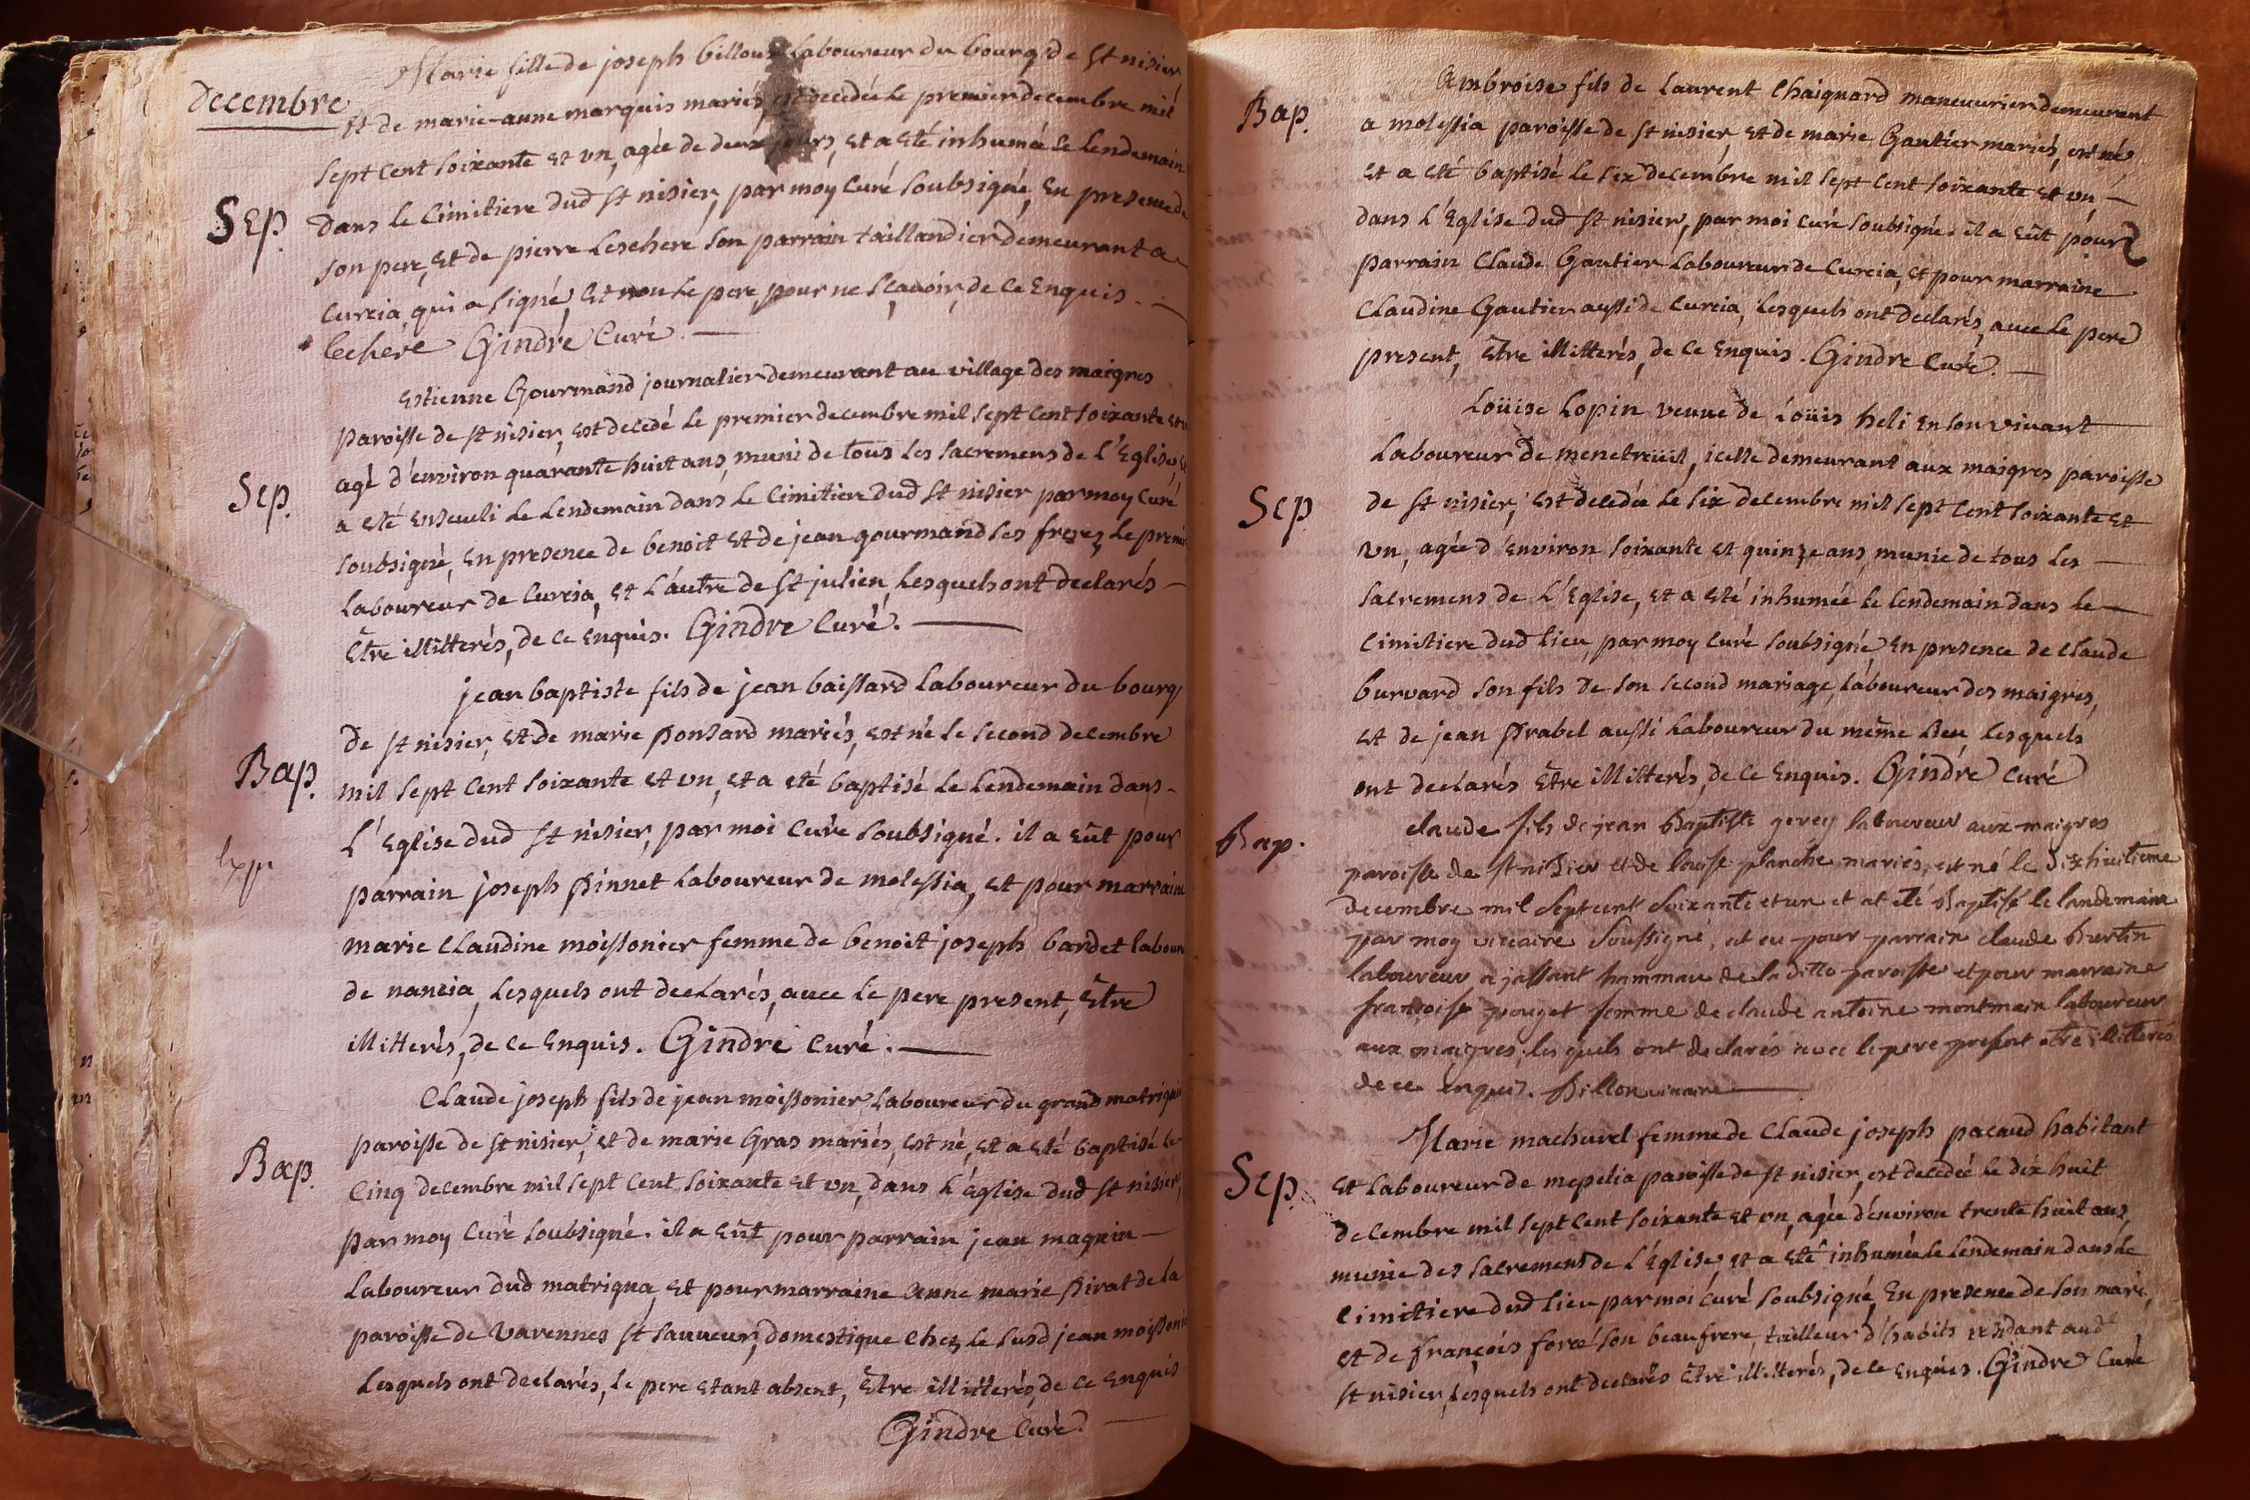 Decembre
Marie fille de joseph billoux Laboureur du bourg de St nisier,
et de marie-anne marquis mariés, est decedée le premier decembre mil
sept cent soixante et un, agée de deux jours, et a eté inhumée le lendemain
Sep.
dans le cimitiere dud St nisier, par moy curé soubsigné, en presence de
son pere, et de pierre Leschere son parrain taillandier demeurant a
curcia, qui a signé, et non le pere pour ne sçavoir, de ce enquis. —
lechere Gindre curé. —
Estienne Gourmand journalier demeurant au village des maigres
paroisse de st nisier, est decedé le premier decembre mil sept cent soixante et
agé d'environ quarante huit ans, muni de tous les sacremens de l'Eglise, et
Sep.
a eté enseveli le lendemain dans le cimitiere dud st nisier par moy curé
soubsigné, en presence de benoit et de jean gourmand ses freres, le premi
laboureur de curcia, et l'autre de st julien, lesquels ont declarés —
être illitterés, de ce enquis. Gindre curé. —
jean baptiste fils de jean baissard laboureur du bourg
de st nisier, et de marie ponsard mariés, est né le second decembre
Bap.
mil sept cent soixante et un, et a eté baptisé le lendemain dans -
l'Eglise dud st nisier, par moi curé soubsigné. il a eût pour
parrain joseph pinnet laboureur de molessia, et pour marraine
marie claudine moissonier femme de benoit joseph bardet labour
de nancia, lesquels ont declarés, avec le pere present, être
illitterés, de ce enquis. Gindre curé. —
Claude joseph fils de jean moissonier laboureur du grand matrigna
paroisse de st nisier, et de marie Gras mariés, est né, et a eté baptisé le
Bap.
cinq decembre mil sept cent soixante et un, dans l'église dud st nisier,
par moy curé soubsigné. il a eût pour parrain jean magnin —
laboureur dud matrigna, et pour marraine anne marie pirat de la
paroisse de varennes st sauveur, domestique chez le susd jean moissonie
lesquels ont declarés, le pere etant absent, être illitterés, de ce enquis
Gindre curé. —
Bap.
Ambroise fils de Laurent Chaignard maneuvrier demeurant
a molessia paroisse de st nisier, et de marie Gautier mariés, est né,
et a eté baptisé le six decembre mil sept cent soixante et un —
dans l'Eglise dud st nisier, par moi curé soubsigné. il a eût pour
parrain Claude Gautier laboureur de curcia, et pour marraine
Claudine Gautier aussi de curcia, lesquels ont declarés, avec le pere
present, être illitterés, de ce enquis. Gindre curé. —
Loüise Lopin veuve de Loüis heli en son vivant
laboureur de menetreüil, icelle demeurant aux maigres paroisse
Sep
de st nisier, est decedée le six decembre mil sept cent soixante et
un, agée d'environ soixante et quinze ans, munie de tous les —
sacremens de l'Eglise, et a eté inhumée le lendemain dans le —
cimitiere dud lieu, par moy curé soubsigné, en presence de claude
burvard son fils de son second mariage, laboureur des maigres,
et de jean prabel aussi laboureur du même lieu lesquels
ont declarés être illitterés, de ce enquis. Gindre curé
Bap.
claude fils de jean Baptiste gerey laboureur aux maigres
paroisse de st nisier et de louise planche mariés, est né le dixhuitieme
decembre mil sept cent soixante et un et at eté Baptisé le landemain
par moy vicaire soussigné, at eu pour parrain claude Burtin
laboureur a jassant hammau de la ditto paroisse et pour marraine
francoise pouget femme de claude antoine montmain laboureur
aux maigres, lesquels ont declarés avec le pere present etre illitterés
de ce enquis. Billon vicaire —
Marie machurel femme de Claude joseph pacaud habitant
Sep.
et laboureur de mepelia paroisse de st nisier, est decedée le dix huit
decembre mil sept cent soixante et un, agée d'environ trente huit ans,
munie des sacremens de l'Eglise, et a eté inhumée le lendemain dans le
cimitiere dud lieu, par moi curé soubsigné, en presence de son mari,
et de françois son beaufrere, tailleur d'habits residant aud
st nisier, lesquels ont declarés être illitterés, de ce enquis. Gindre curé